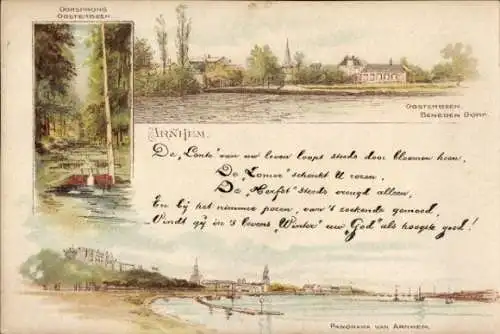 OORSPRONG
OOSTERBEEK.
OOSTERBEEK.
BENEDEN DORP.
ARNHEM.
De „Lente" van uw leven loopt steeds door bloemen heen,
De „Zomer" schenkt U rozen,
De „Herfst" steeds vreugd alleen,
En bij het nimmer pozen, van 't zoekende gemoed,
Vindt gij in 's levens „Winter" uw „God" als hoogste goed!
PANORAMA VAN ARNHEM.